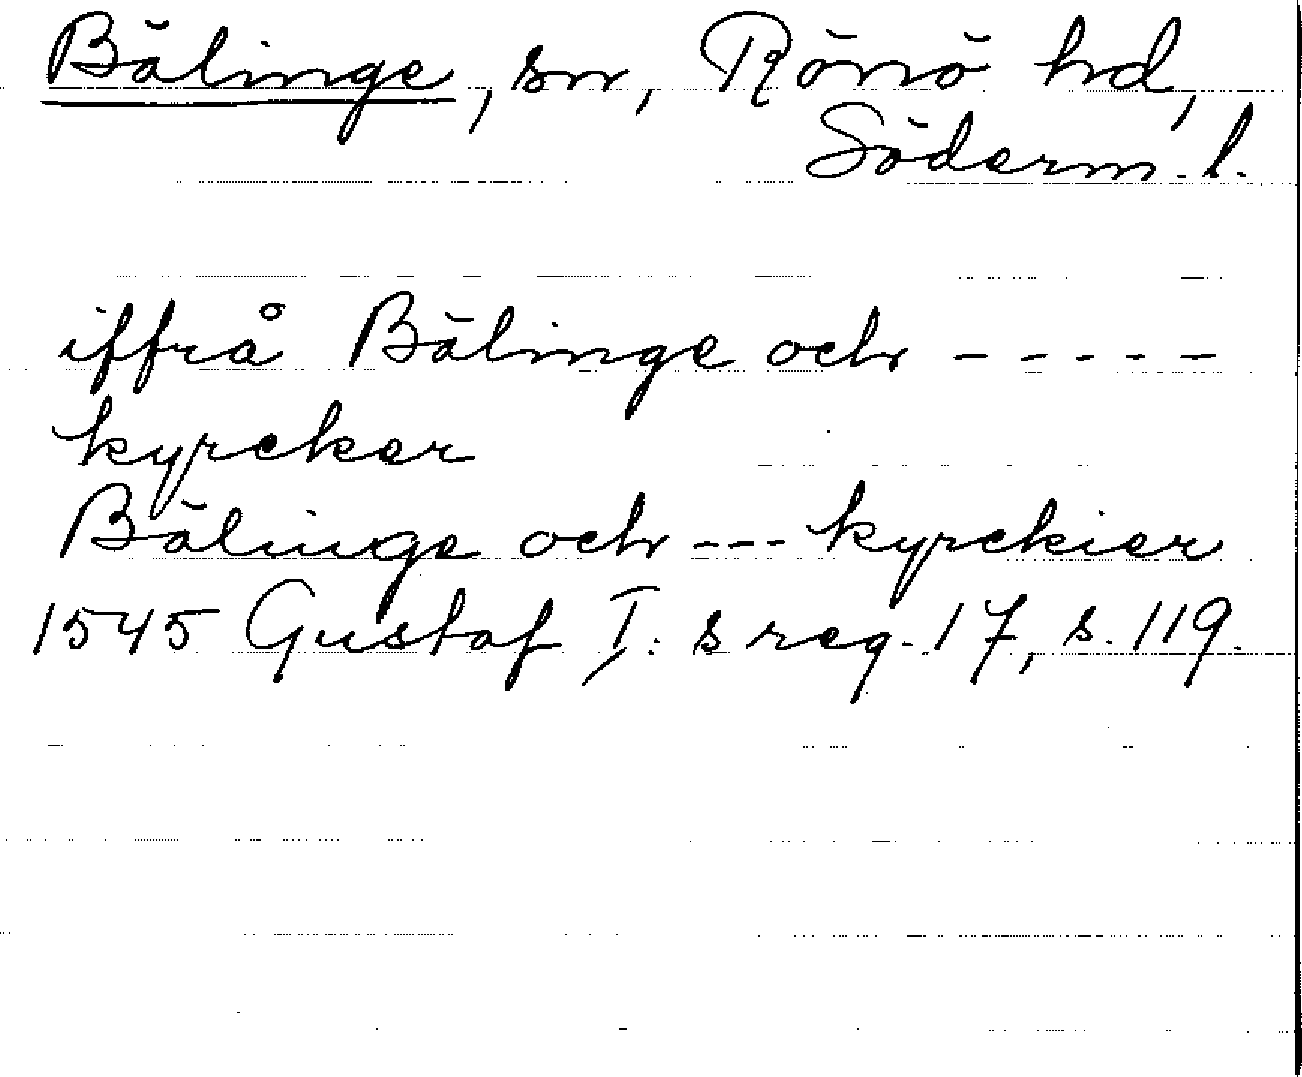 Bälinge, sn, Rönö hd,
Söderm. l.
iffrå Bälinge och - - - - -
kyrcker
Bälinge och --- kyrckier
1545 Gustaf I: s reg. 17, s. 119.